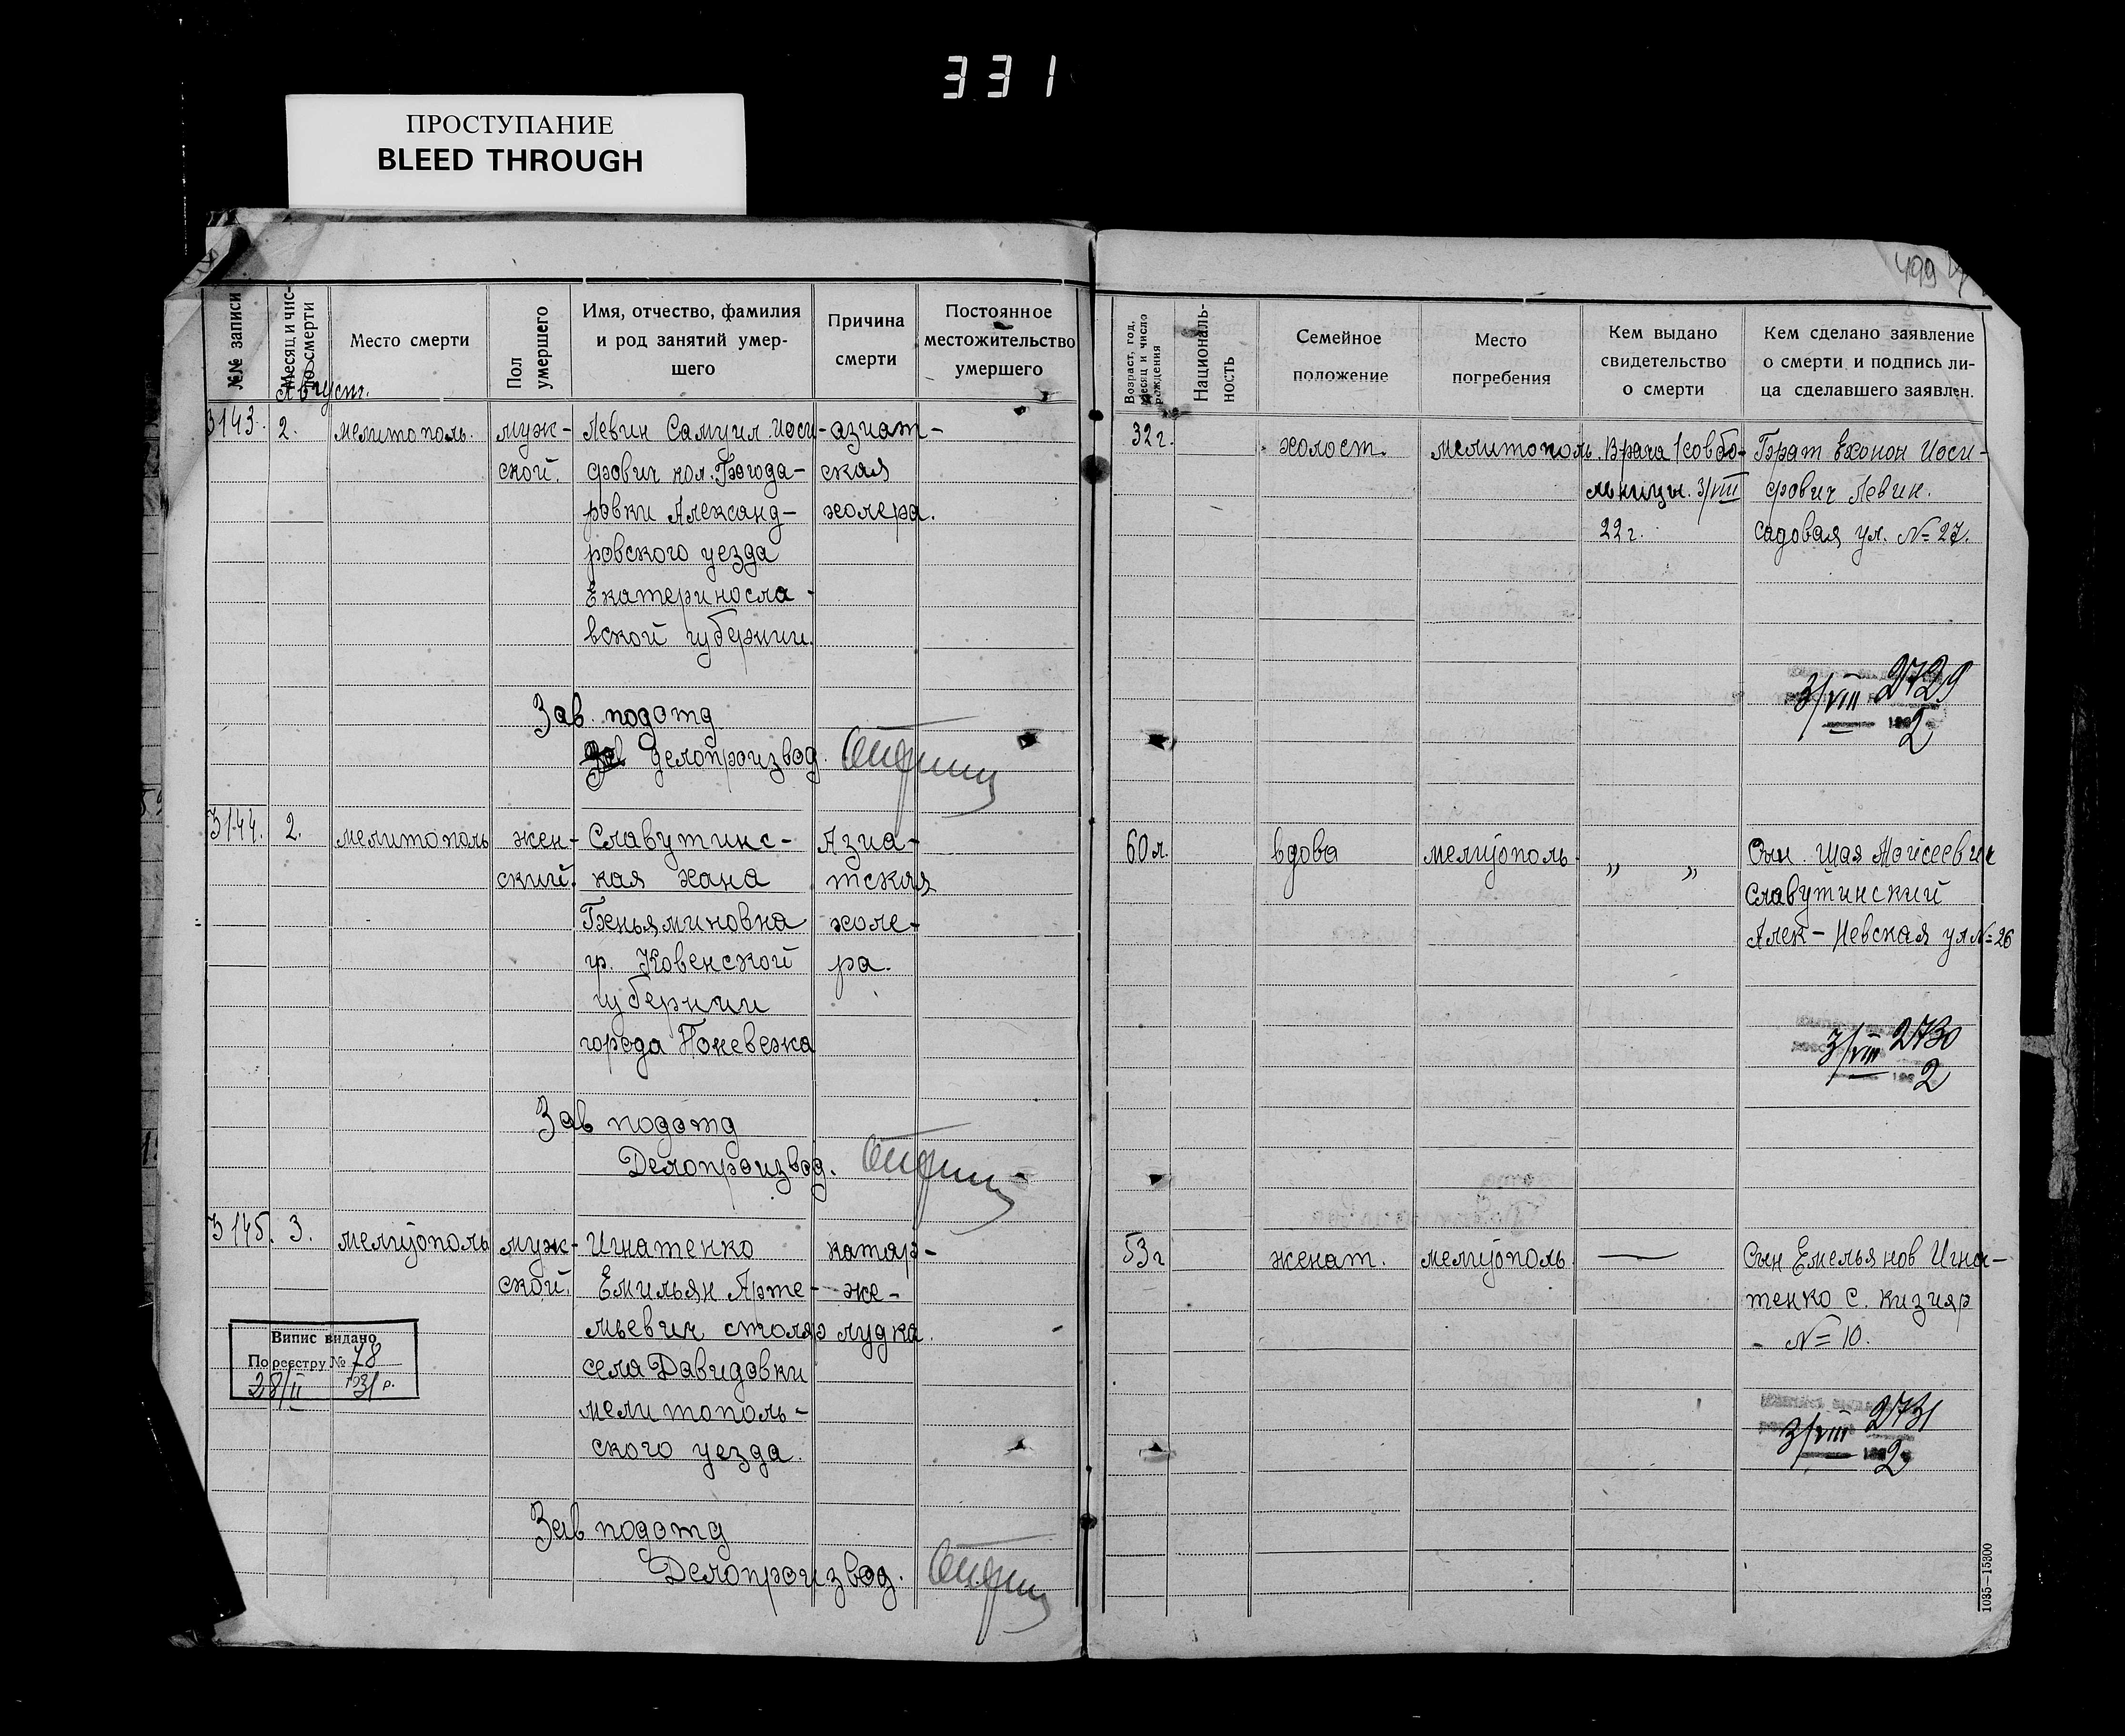 331
ПРОСТУПАНИЕ
BLEED THROUGH
499
№№ записи
Месяц и чис-
ло смерти
Место смерти
Пол
умершего
Имя, отчество, фамилия
и род занятий умер-
шего
Причина
смерти
Постоянное
местожительство
умершего
Возраст, год,
месяц и число
рождения
Националь-
ность
Семейное
положение
Место
погребения
Кем выдано
свидетельство
о смерти
Кем сделано заявление
о смерти и подпись ли-
ца сделавшего заявлен.
Август.
3143.
2.
мелитополь.
муж-
ской.
Левин Самуил Иоси-
фович кол. Богода-
ровки Александ-
ровского уезда
Екатериносла-
вской губернии.
азиат-
ская
холера.
32 г.
холост.
мелитополь.
Врача 1 совбо-
льницы. 3/VIII
22 г.
Брат Ехонон Иоси-
фович Левин.
садовая ул. №27.
3/VIII 2729
2
Зав. подотд
Делопроизвод.
3144.
2.
мелитополь
жен-
ский.
Славутинс-
кая хана
Беньяминовна
гр. Ковенской
губернии
города Поневежа
Азиа-
тская
холе-
ра.
60 л.
вдова
мелитополь
„ „
Сын Шая Мойсеевич
Славутинский
Алек-Невская ул №26
3/VIII 2730
2
Зав подотд
Делопроизвод.
3145.
3.
мелитополь
муж-
ской.
Игнатенко
Емильян Арте-
мьевич столяр
села Давидовки
мелитополь-
ского уезда.
катар-
же-
лудка.
53 г
женат.
мелитополь.
Сын Емельянов Игна-
тенко с. кизияр
№10.
3/VIII 2731
2
Випис видано
По реєстру № 78
28/II 1931 р.
Зав подотд
Делопроизвод.
1035—15300